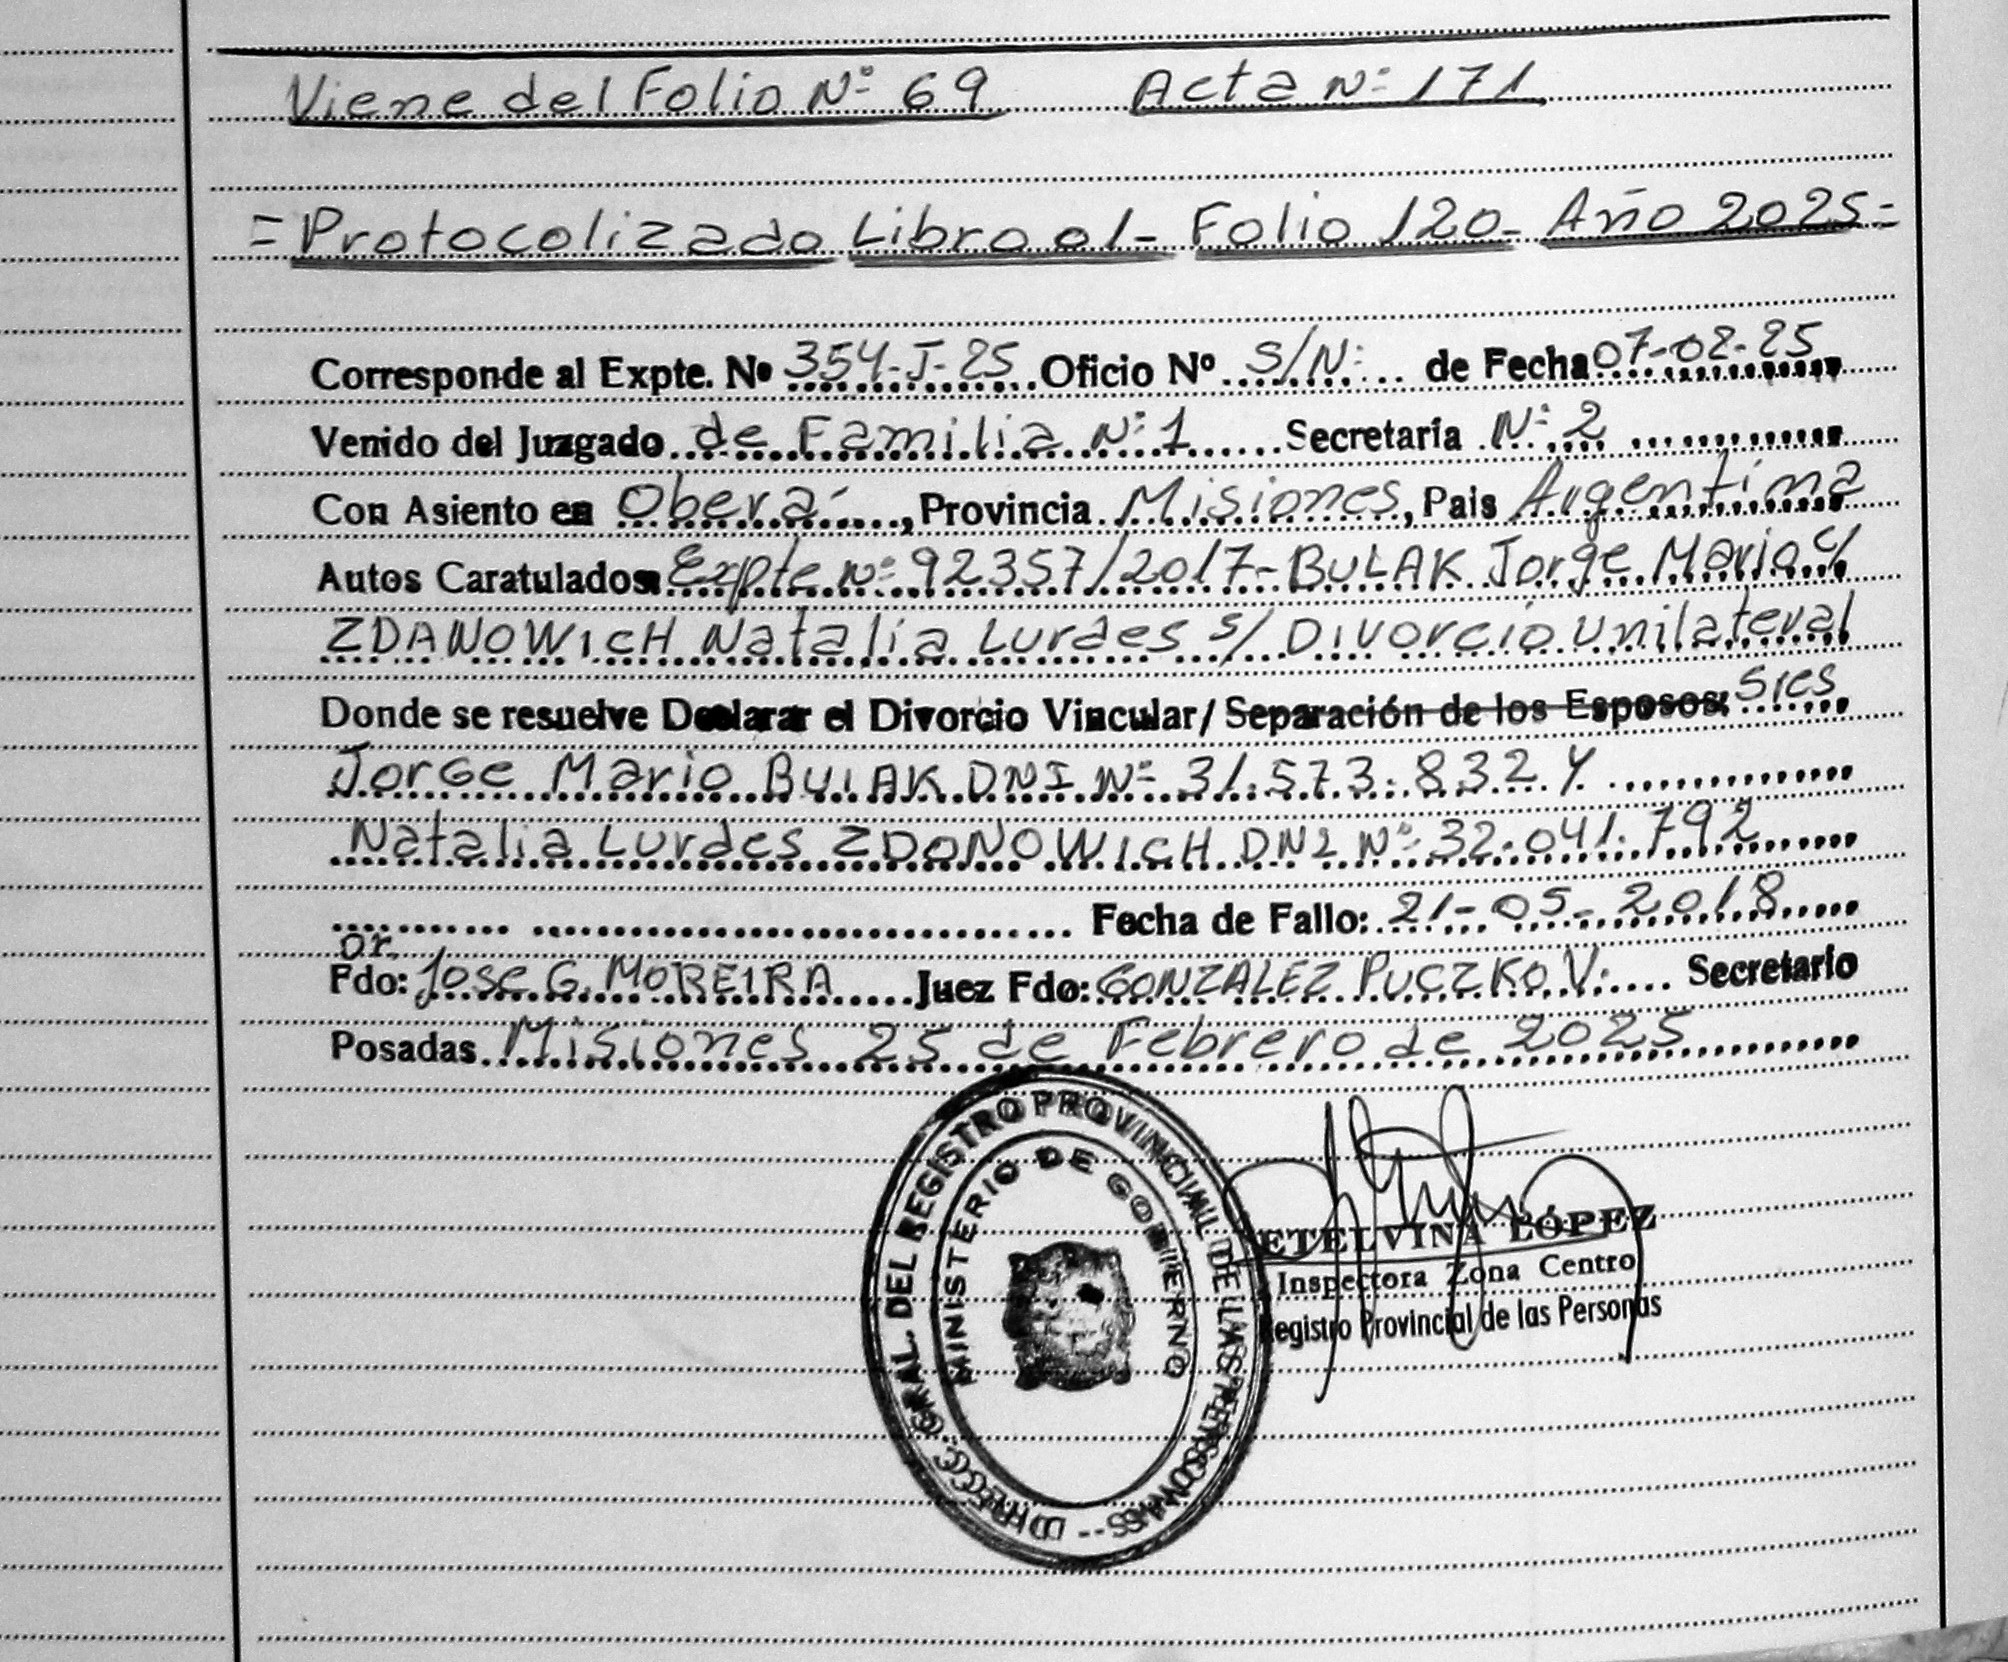 Viene del Folio Nº 69 Acta Nº 171
=Protocolizado Libro 01- Folio 120- Año 2025=
Corresponde al Expte. Nº 354-J-25 Oficio Nº S/Nº de Fecha 07-02-25
Venido del Juzgado de Familia Nº 1 Secretaría Nº 2
Con Asiento en Oberá, Provincia Misiones, Pais Argentina
Autos Caratulados Expte Nº 92357/2017-BULAK Jorge Mario c/
ZDANOWICH Natalia Lurdes s/ Divorcio Unilateral
Donde se resuelve Declarar el Divorcio Vincular/ Separación de los Esposos: Sres
Jorge Mario BULAK DNI Nº 31.573.832 Y
Natalia Lurdes ZDONOWICH DNI Nº 32.041.792
Fecha de Fallo: 21-05-2018
Fdo: Dr. Jose G. MOREIRA Juez Fdo: GONZALEZ PUCZKO V. Secretario
Posadas Misiones 25 de Febrero de 2025
DIRECC. GRAL. DEL REGISTRO PROVINCIAL DE LAS PERSONAS
MINISTERIO DE GOBIERNO
ETELVINA LÓPEZ
Inspectora Zona Centro
Registro Provincial de las Personas